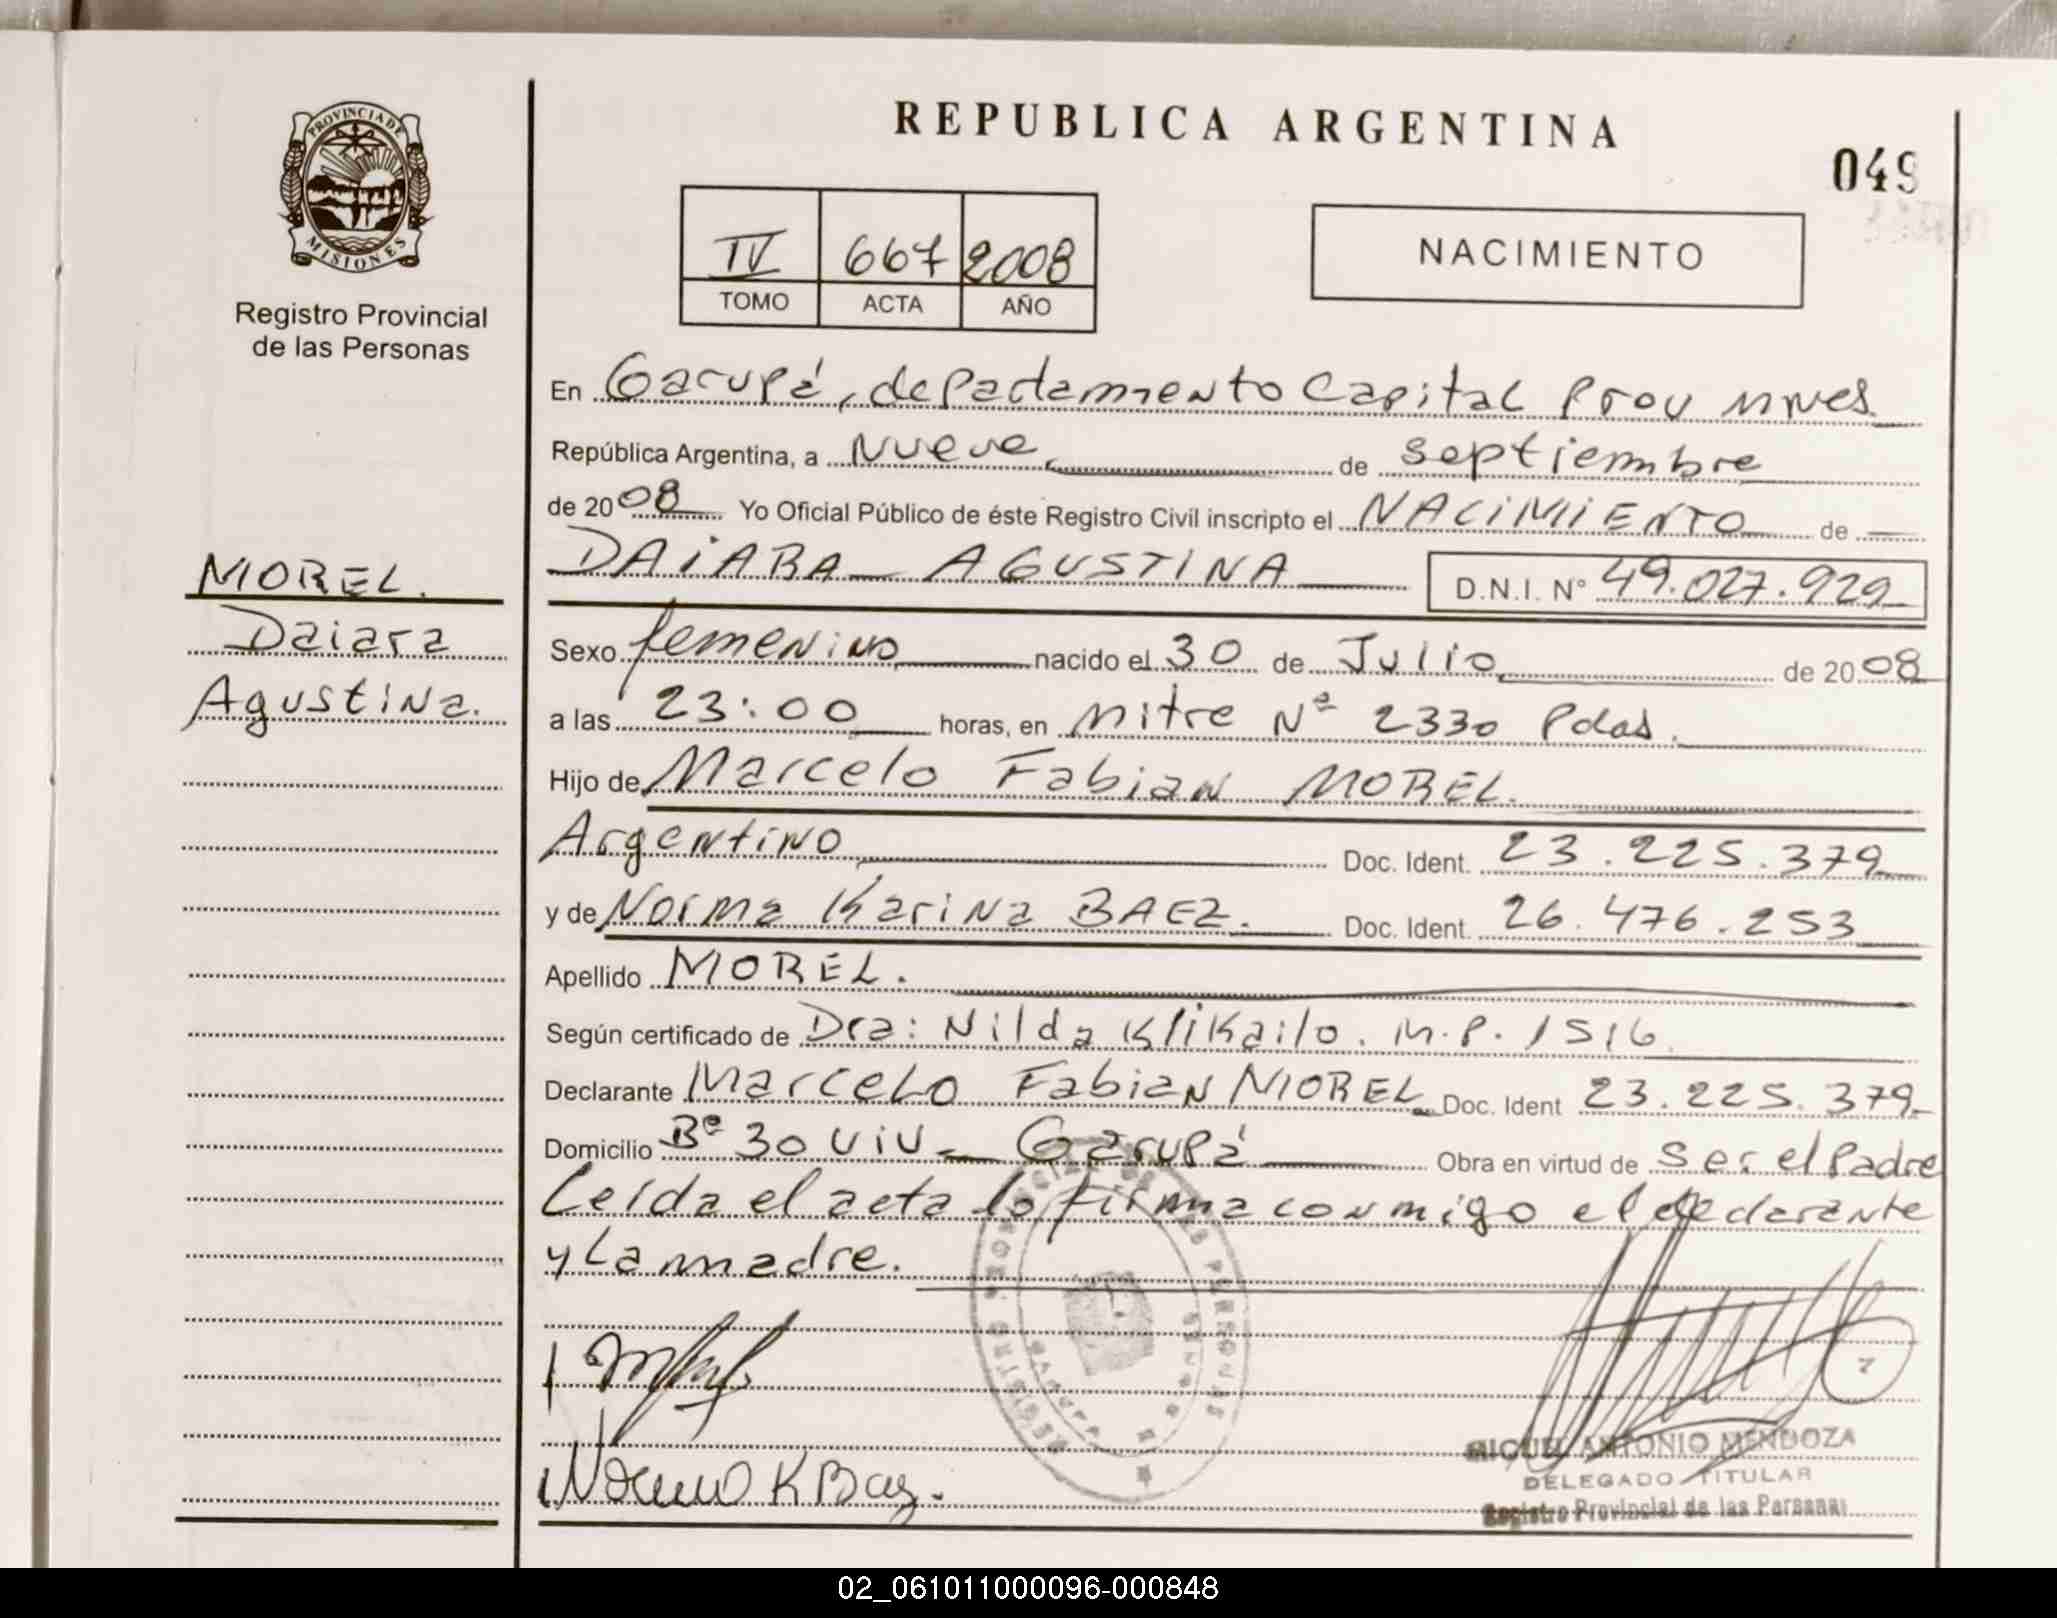 PROVINCIA DE
MISIONES
Registro Provincial
de las Personas
MOREL.
Daiara
Agustina.
REPUBLICA ARGENTINA
049
IV 667 2008
TOMO ACTA AÑO
NACIMIENTO
En Garupá, departamiento Capital Prov Mnes.
República Argentina, a Nueve de septiembre
de 2008 Yo Oficial Público de éste Registro Civil inscripto el NACIMIENTO de
DAIARA AGUSTINA D.N.I. Nº 49.027.929
Sexo femenino nacido el 30 de Julio de 2008
a las 23:00 horas, en Mitre Nº 2330 Pdas.
Hijo de Marcelo Fabian MOREL.
Argentino Doc. Ident. 23.225.379
y de Norma Karina BAEZ. Doc. Ident. 26.476.253
Apellido MOREL.
Según certificado de Dra: Nilda Klikailo. M.P. 1516
Declarante Marcelo Fabian MOREL Doc. Ident 23.225.379
Domicilio Bº 30 viv - Garupá Obra en virtud de ser el Padre
Leída el acta la firma conmigo el declarante
y la madre.
REGISTRO PROVINCIAL DE LAS PERSONAS
GARUPA
MIGUEL ANTONIO MENDOZA
DELEGADO TITULAR
Registro Provincial de las Personas
02_061011000096-000848